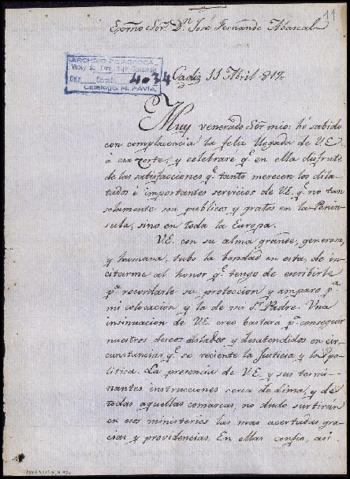 11
Exmo Sor. Dn. José Fernando Abascal
ARCHIVO Y BIBLIOTECA
4034
Catalogo M. PAVIA
Cadiz 11 Abril 817.
Muy venerado Sor. mio: hé sabido
con complacencia la feliz llegada de V.E.
à esa Corte, y celebraré qe. en ella disfrute
de las satisfacciones qe. tanto merecen los dila-
tados é importantes servicios de V.E. qe. no tan
solamente son publicos y gratos en la Penin-
sula, sino en toda la Europa.
V.E. con su alma grande, generosa,
y humana, tubo la bondad en esta, de in-
citarme al honor qe. tengo de escribirle
pa. recordarle su proteccion y amparo pa.
mi colocacion y la de mi Sr. Padre. Una
insinuacion de V.E. creo bastara pa. conseguir
nuestros deseos alabor y desatendidos en cir-
cunstancias qe. se reciente la Justicia y la po-
litica. La presencia de V.E. y sus termi-
nantes instrucciones cerca de Lima, y de
todas aquellas comarcas, no dudo surtirán
en esos ministerios las mas acertadas gra-
cias y providencias. En ellas confio, así